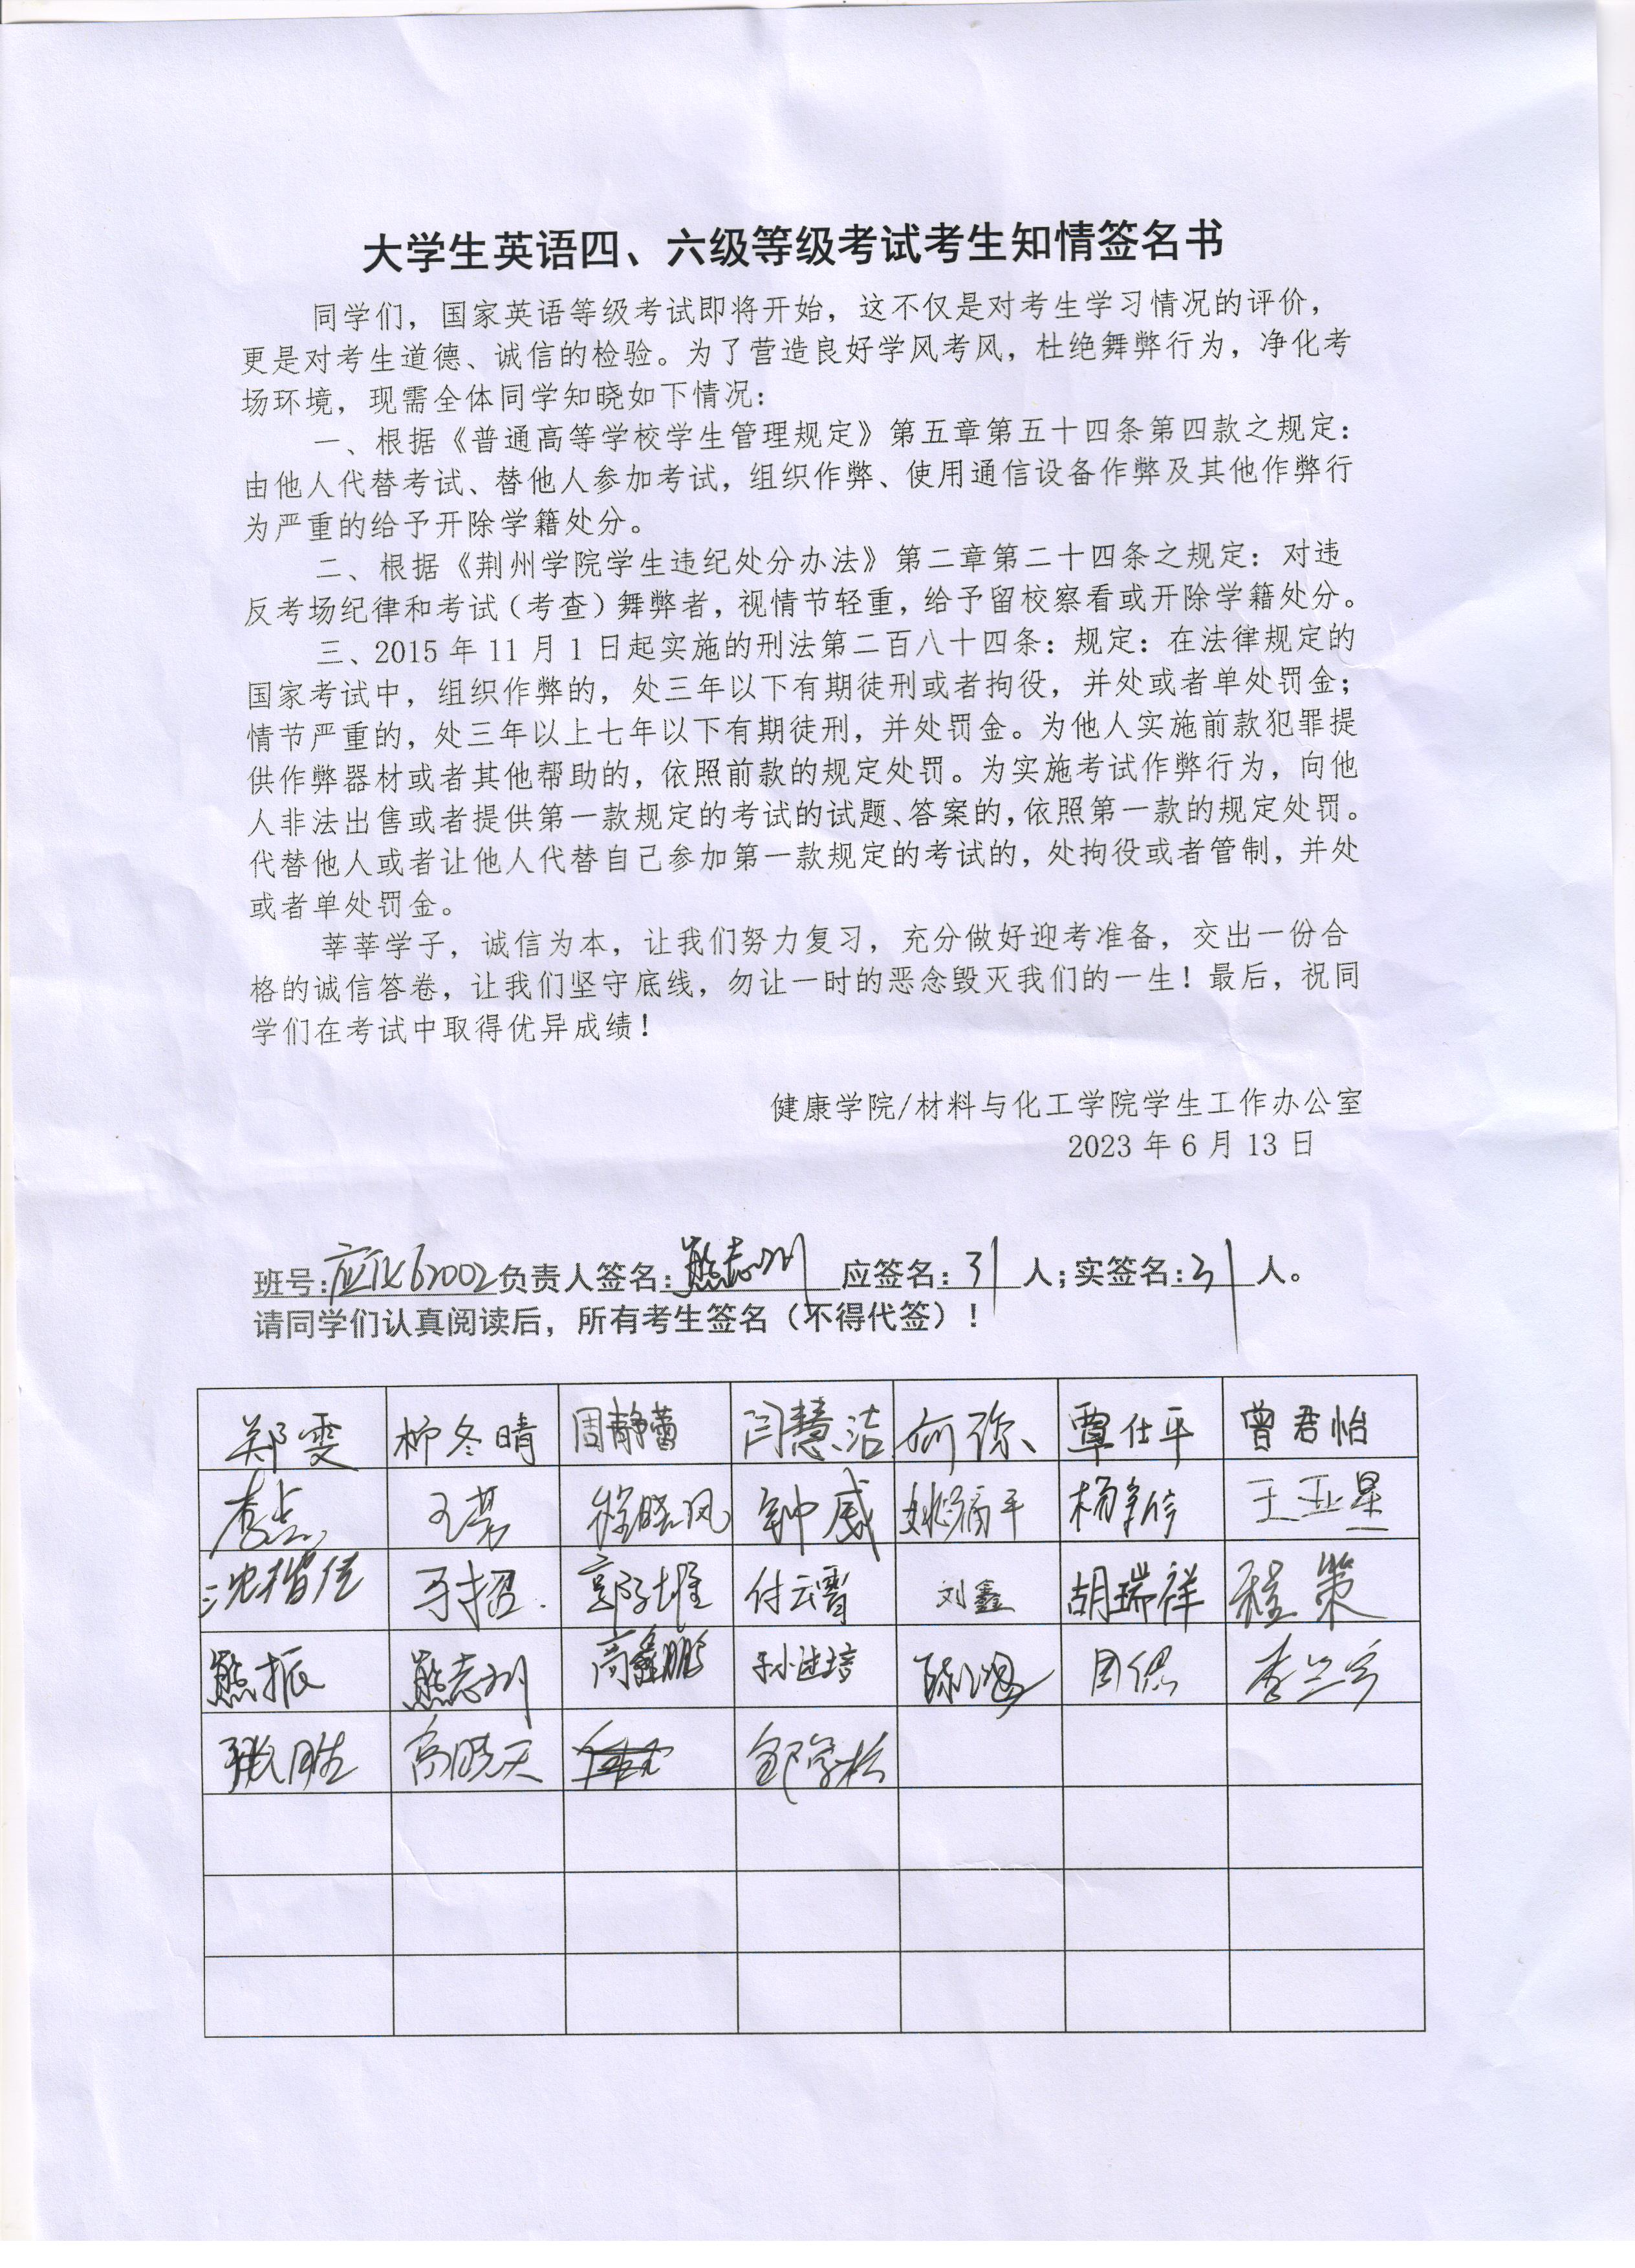 大学生英语四、六级等级考试考生知情签名书
同学们，国家英语等级考试即将开始，这不仅是对考生学习情况的评价，
更是对考生道德、诚信的检验。为了营造良好学风考风，杜绝舞弊行为，净化考
场环境，现需全体同学知晓如下情况：
一、根据《普通高等学校学生管理规定》第五章第五十四条第四款之规定：
由他人代替考试、替他人参加考试，组织作弊、使用通信设备作弊及其他作弊行
为严重的给予开除学籍处分。
二、根据《荆州学院学生违纪处分办法》第二章第二十四条之规定：对违
反考场纪律和考试（考查）舞弊者，视情节轻重，给予留校察看或开除学籍处分。
三、2015年11月1日起实施的刑法第二百八十四条：规定：在法律规定的
国家考试中，组织作弊的，处三年以下有期徒刑或者拘役，并处或者单处罚金；
情节严重的，处三年以上七年以下有期徒刑，并处罚金。为他人实施前款犯罪提
供作弊器材或者其他帮助的，依照前款的规定处罚。为实施考试作弊行为，向他
人非法出售或者提供第一款规定的考试的试题、答案的，依照第一款的规定处罚。
代替他人或者让他人代替自己参加第一款规定的考试的，处拘役或者管制，并处
或者单处罚金。
莘莘学子，诚信为本，让我们努力复习，充分做好迎考准备，交出一份合
格的诚信答卷，让我们坚守底线，勿让一时的恶念毁灭我们的一生！最后，祝同
学们在考试中取得优异成绩！
健康学院/材料与化工学院学生工作办公室
2023年6月13日
班号：应化62002负责人签名：熊志刚 应签名：31人；实签名：31人。
请同学们认真阅读后，所有考生签名（不得代签）！
郑雯 柳冬晴 周静蕾 闫慧洁 何弥 覃仕平 曾君怡
李点 徐晓风 钟威 杨新信 王亚星
沈楷信 付云霄 刘鑫 胡瑞祥 程策
熊振 熊志刚 高鑫鹏 孙进培 周偲 李兰宇
张胜 高晓天 邹学松